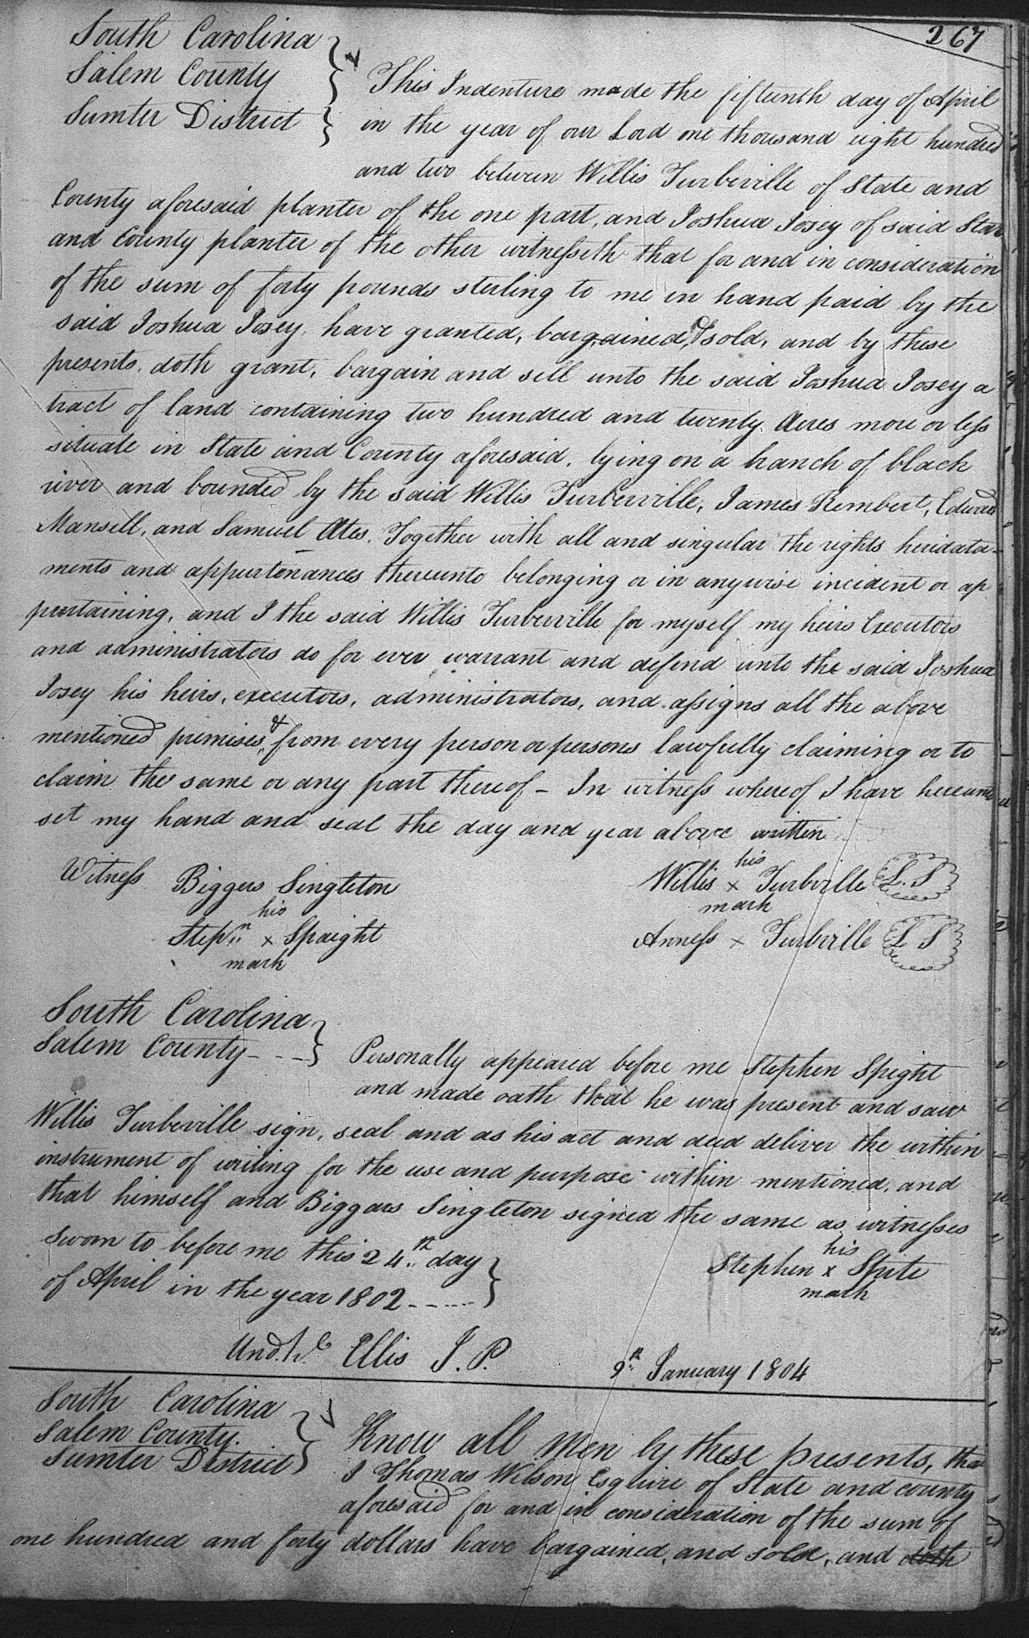 267
South Carolina
Salem County
Sumter District
This Indenture made the fifteenth day of April
in the year of our Lord one thousand eight hundred
and two between Willis Turberville of State and
County aforesaid planter of the one part, and Joshua Josey of said State
and County planter of the other witnesseth that for and in consideration
of the sum of forty pounds sterling to me in hand paid by the
said Joshua Josey have granted, bargained, & sold, and by these
presents, doth grant, bargain and sell unto the said Joshua Josey a
tract of land containing two hundred and twenty Acres more or less
situate in State and County aforesaid, lying on a branch of black
river and bounded by the said Willis Turberville, James Rembert, Edward
Mansell, and Samuel Ates. Together with all and singular the rights heridata-
ments and appurtenances thereunto belonging or in anywise incident or ap
pertaining, and I the said Willis Turberville for myself my heirs Executors
and administrators do for ever warrant and defend unto the said Joshua
Josey his heirs, executors, administrators, and assigns all the above
mentioned premises, & from every person or persons lawfully claiming or to
claim the same or any part thereof - In witness whereof I have hereunto
set my hand and seal the day and year above written
Witness Biggers Singleton
his
Stepn x Spaight
mark
his
Willis x Turbville L.S
mark
Anness x Turbville L S
South Carolina
Salem County - - -
Personally appeared before me Stephen Spight
and made oath that he was present and saw
Willis Turberville sign, seal and as his act and deed deliver the within
instrument of writing for the use and purpose within mentioned, and
that himself and Biggars Singleton signed the same as witnesses
Sworn to before me this 24th day
of April in the year 1802 - - - -
his
Stephen x Spite
mark
Ellis J. P.
9th January 1804
South Carolina
Salem County.
Sumter District
Know all Men by these presents, that
I Thomas Wilson Esquire of State and county
aforesaid for and in consideration of the sum of
one hundred and forty dollars have bargained, and sold, and doth